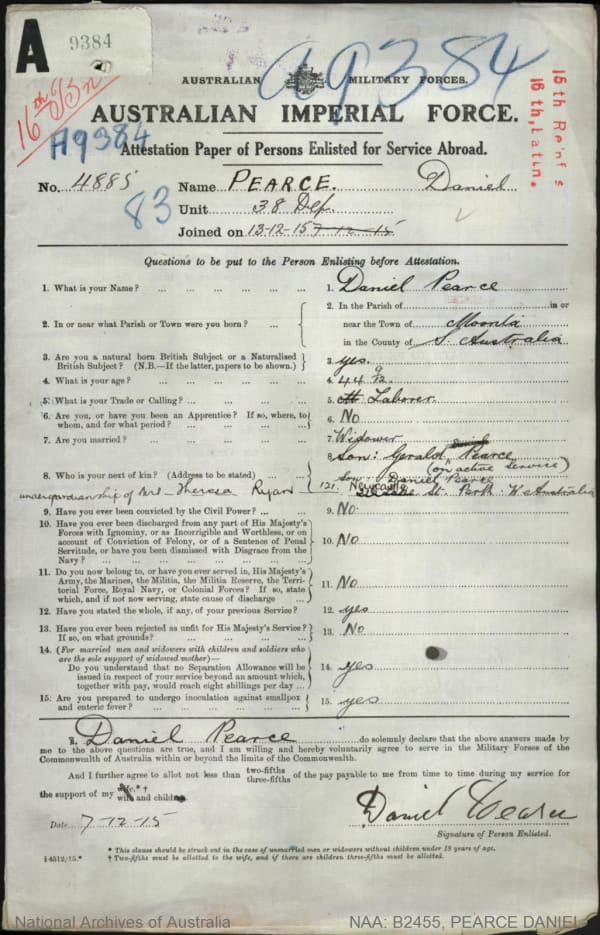 A 9384
A9384
AUSTRALIAN MILITARY FORCES.
AUSTRALIAN IMPERIAL FORCE.
16th Bn
H9384
16th Reinf s
16 th, Latin.
Attestation Paper of Persons Enlisted for Service Abroad.
No. 4885 Name PEARCE. Daniel
83 Unit 38 Dep.
Joined on 13-12-15 7-12-15
Questions to be put to the Person Enlisting before Attestation.
1. What is your Name? ... 1. Daniel Pearce
2. In or near what Parish or Town were you born? ... 2. In the Parish of in or
near the Town of Moonta
in the County of S. Australia
3. Are you a natural born British Subject or a Naturalised
British Subject? (N.B.—If the latter, papers to be shown.) 3. yes.
4. What is your age? ... 4. 44 9/12
5. What is your Trade or Calling? ... 5. Laborer.
6. Are you, or have you been an Apprentice? If so, where, to
whom, and for what period? ... 6. No
7. Are you married? ... 7. Widower
8. Who is your next of kin? (Address to be stated) ... 8. son: Gerald Pearce
(on active service)
son Daniel Pearce
under guardianship of Mrs Theresa Ryan 121 Newcastle St. Perth. W Australia
9. Have you ever been convicted by the Civil Power? ... 9. No.
10. Have you ever been discharged from any part of His Majesty's
Forces with Ignominy, or as Incorrigible and Worthless, or on
account of Conviction of Felony, or of a Sentence of Penal
Servitude, or have you been dismissed with Disgrace from the
Navy? ... 10. No
11. Do you now belong to, or have you ever served in, His Majesty's
Army, the Marines, the Militia, the Militia Reserve, the Terri-
torial Force, Royal Navy, or Colonial Forces? If so, state
which, and if not now serving, state cause of discharge ... 11. No
12. Have you stated the whole, if any, of your previous Service? 12. yes
13. Have you ever been rejected as unfit for His Majesty's Service?
If so, on what grounds? ... 13. No
14. (For married men and widowers with children and soldiers who
are the sole support of widowed mother)—
Do you understand that no Separation Allowance will be
issued in respect of your service beyond an amount which,
together with pay, would reach eight shillings per day ... 14. yes
15. Are you prepared to undergo inoculation against smallpox
and enteric fever? ... 15. yes
I, Daniel Pearce do solemnly declare that the above answers made by
me to the above questions are true, and I am willing and hereby voluntarily agree to serve in the Military Forces of the
Commonwealth of Australia within or beyond the limits of the Commonwealth.
And I further agree to allot not less than two-fifths three-fifths of the pay payable to me from time to time during my service for
the support of my wife.*† wife and children.
Date 7-12-15 Daniel Pearce
Signature of Person Enlisted.
* This clause should be struck out in the case of unmarried men or widowers without children under 18 years of age.
† Two-fifths must be allotted to the wife, and if there are children three-fifths must be allotted.
‡4512/15.*
National Archives of Australia NAA: B2455, PEARCE DANIEL